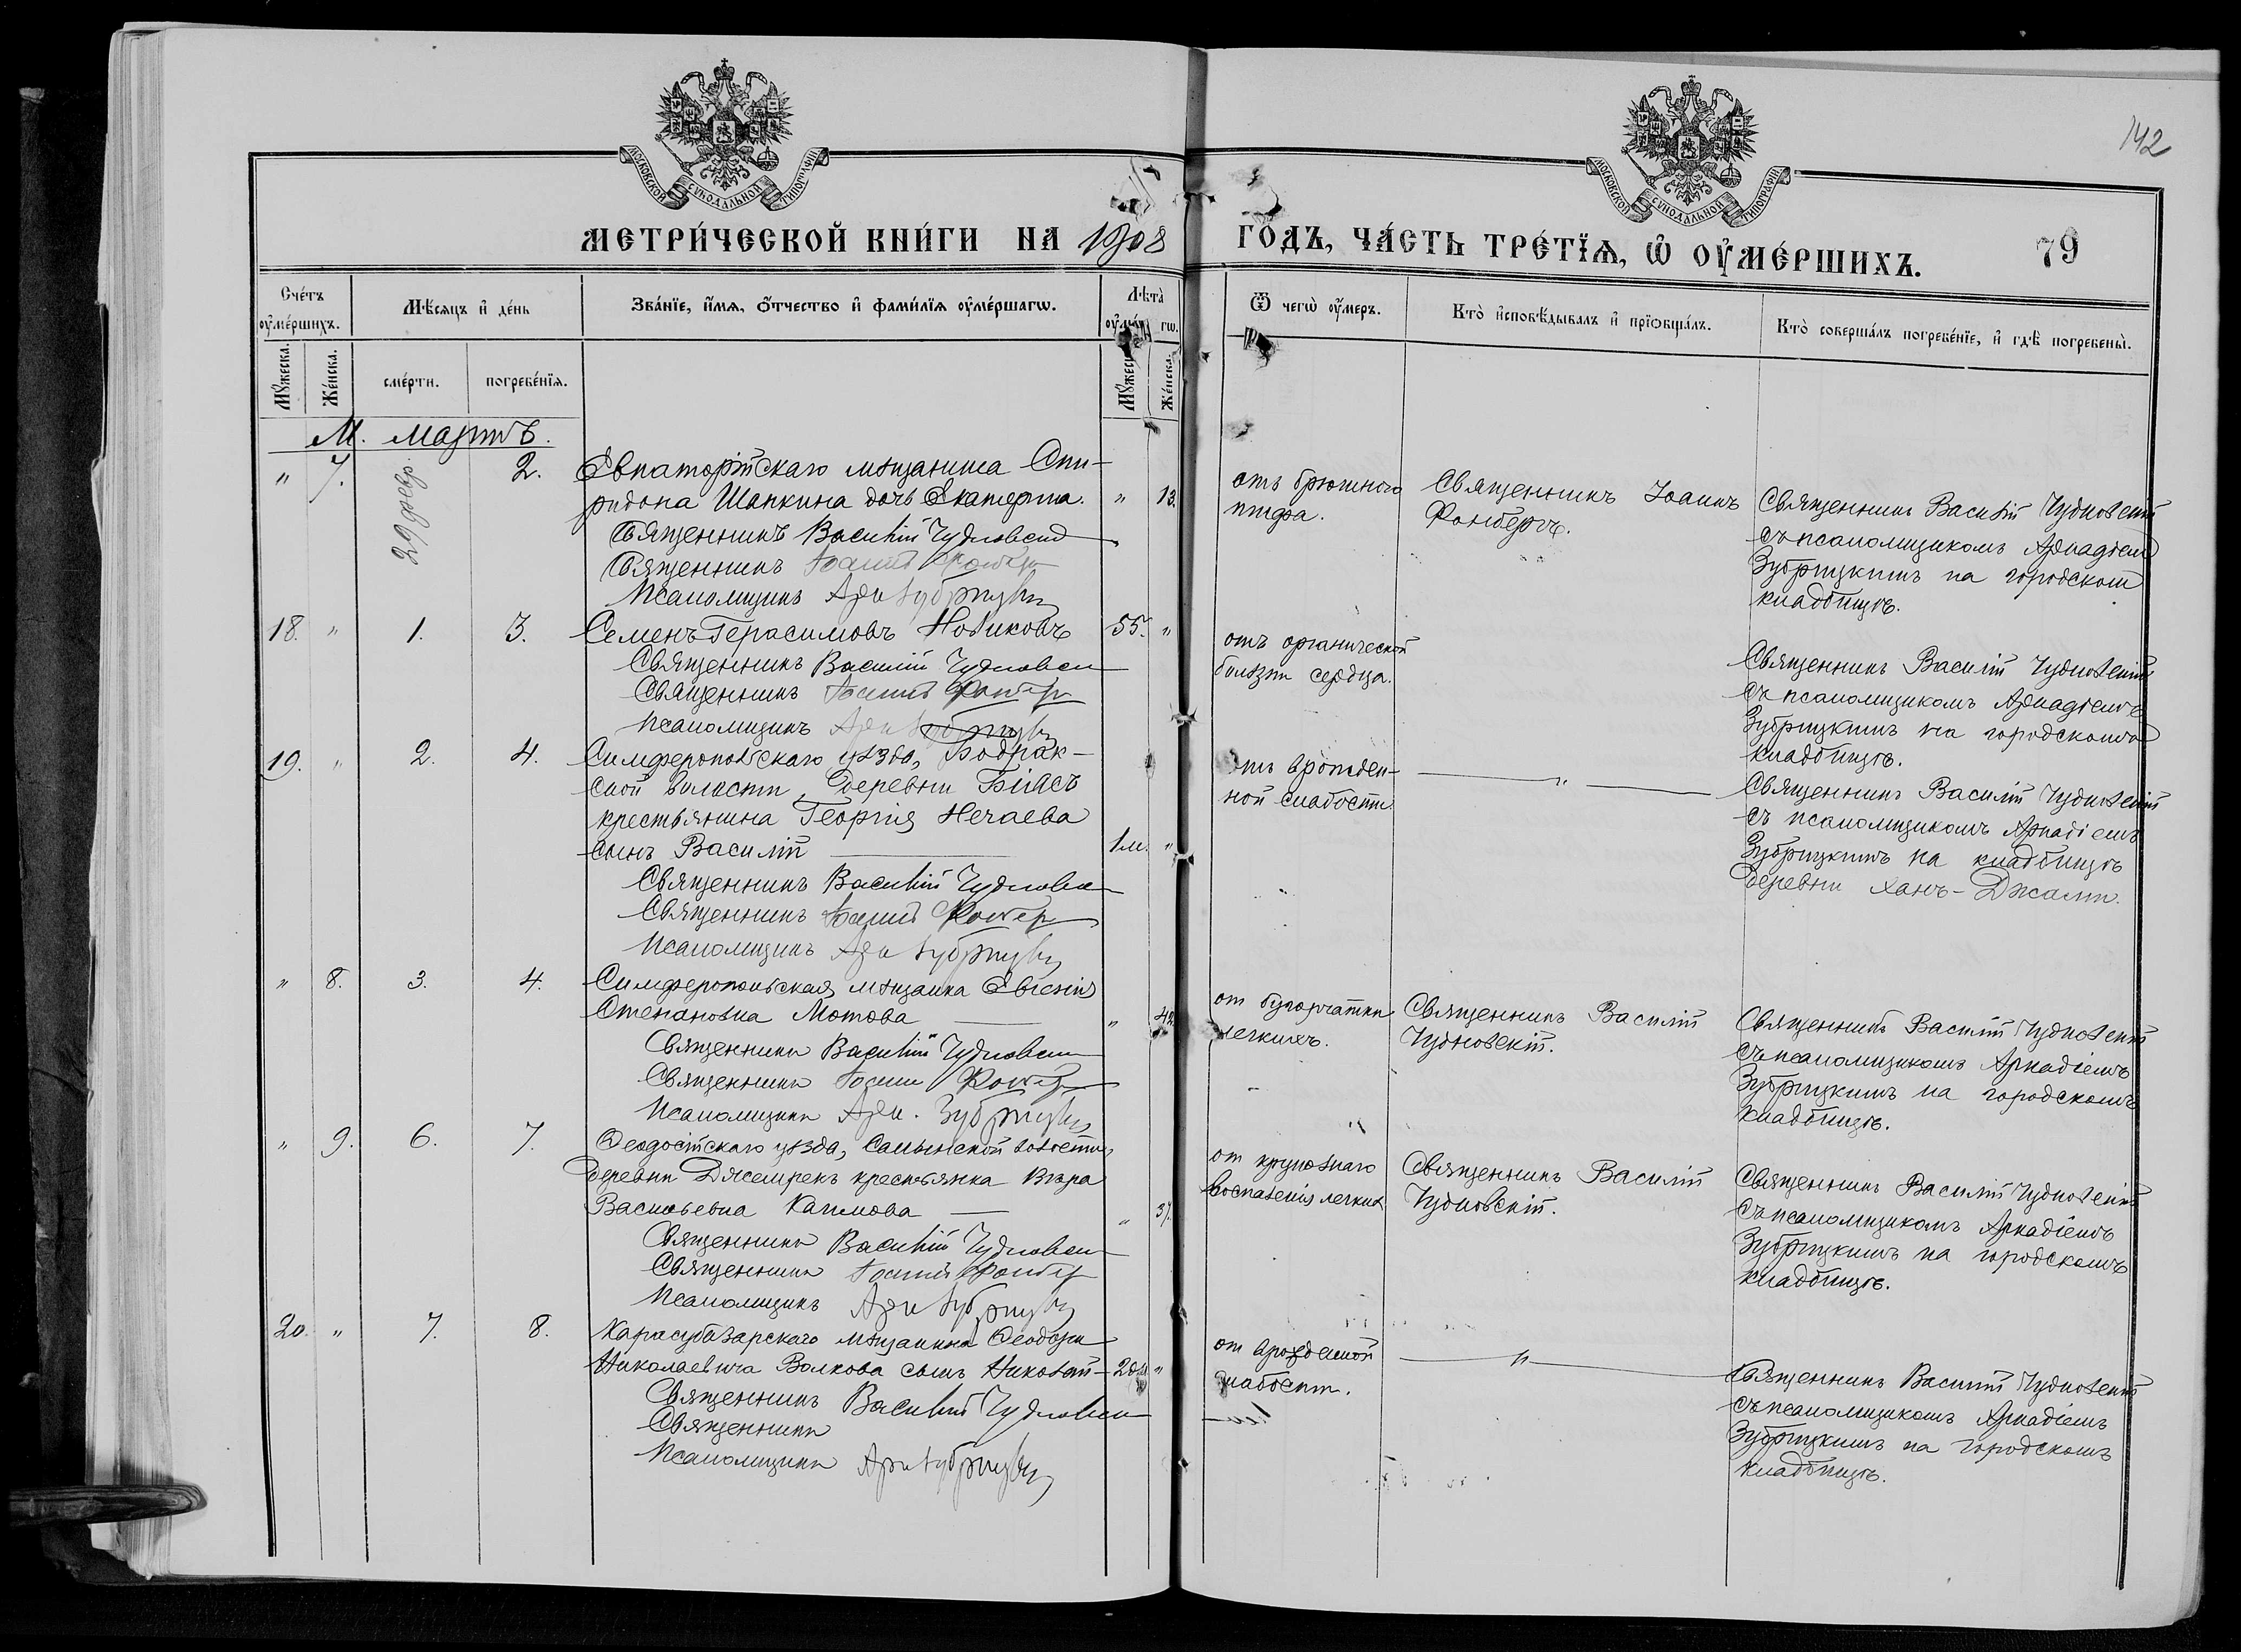 142
МОСКОВСКОЙ СѴНОДАЛЬНОЙ ТИПОГРАФІИ
МОСКОВСКОЙ СѴНОДАЛЬНОЙ ТИПОГРАФІИ
МЕТРИ́ЧЕСКОЙ КНИ́ГИ НА 1908 ГО́ДЪ, ЧА́СТЬ ТРЕ́ТІѦ, Ѡ҆ ОУ҆МЕ́РШИХЪ. 79
Сче́тъ оу҆ме́ршихъ.
Мѣ́сѧцъ и҆ де́нь
Зва́нїе, и҆́мѧ, ѻ҆́тчество и҆ фами́лїѧ оу҆ме́ршагѡ.
Лѣ́та
Ѿ чегѡ̀ оу҆́меръ.
Кто̀ и҆сповѣ́дывалъ и҆ прїѡбща́лъ.
Кто̀ соверша́лъ погребе́нїе, и҆ гдѣ̀ погребены̀.
Мꙋ́жеска.
Же́нска.
сме́рти.
погребе́нїѧ.
Же́нска.
М. мартъ.
" 7. 29 февр. 2. Евпаторійскаго мѣщанина Спи-
ридона Шапкина дочь Екатерина. " 13.
Священникъ Василій Чудновскій
Священникъ Іоаннъ
Псаломщикъ Арк Зубрицкій
отъ брюшного
тифа.
Священникъ Іоаннъ
Фонбергъ.
Священникъ Василій Чудновскій
съ псаломщикомъ Аркадіемъ
Зубрицкимъ на городскомъ
кладбищѣ.
18. " 1. 3. Семенъ Герасимовъ Новиковъ 55. "
Священникъ Василій Чудновскій
Священникъ Іоаннъ
Псаломщикъ Арк Зубрицкій
отъ органической
болѣзни сердца.
Священникъ Василій Чудновскій
съ псаломщикомъ Аркадіемъ
Зубрицкимъ на городскомъ
кладбищѣ.
19. " 2. 4. Симферопольскаго уѣзда, Бодрак-
ской волости, деревни Біасъ
крестьянина Георгія Нечаева
сынъ Василій 1 м. "
Священникъ Василій Чудновскій
Священникъ Іоаннъ
Псаломщикъ Арк Зубрицкій
отъ врожден-
ной слабости
"
Священникъ Василій Чудновскій
съ псаломщикомъ Аркадіемъ
Зубрицкимъ на кладбищѣ
деревни Ханъ-Джами.
" 8. 3. 4. Симферопольская мѣщанка Евгенія
Степановна Мотова " 42
Священникъ Василій Чудновскій
Священникъ Іоаннъ
Псаломщикъ Арк. Зубрицкій
от бугорчатки
легкихъ.
Священникъ Василій
Чудновскій.
Священникъ Василій Чудновскій
съ псаломщикомъ Аркадіемъ
Зубрицкимъ на городскомъ
кладбищѣ.
" 9. 6. 7. Ѳеодосійскаго уѣзда, волости,
деревни Джемрекъ крестьянка Вѣра
Васильевна " 37.
Священникъ Василій Чудновскій
Священникъ Іоаннъ
Псаломщикъ Арк Зубрицкій
от крупознаго
воспаленія легких
Священникъ Василій
Чудновскій.
Священникъ Василій Чудновскій
съ псаломщикомъ Аркадіемъ
Зубрицкимъ на городскомъ
кладбищѣ.
20. " 7. 8. Карасубазарскаго мѣщанина Ѳеодора
Николаевича Волкова сынъ Николай "
Священникъ Василій Чудновскій
Священникъ
Псаломщикъ Арк Зубрицкій
от врожденной
слабости.
"
Священникъ Василій Чудновскій
съ псаломщикомъ Аркадіемъ
Зубрицкимъ на городскомъ
кладбищѣ.